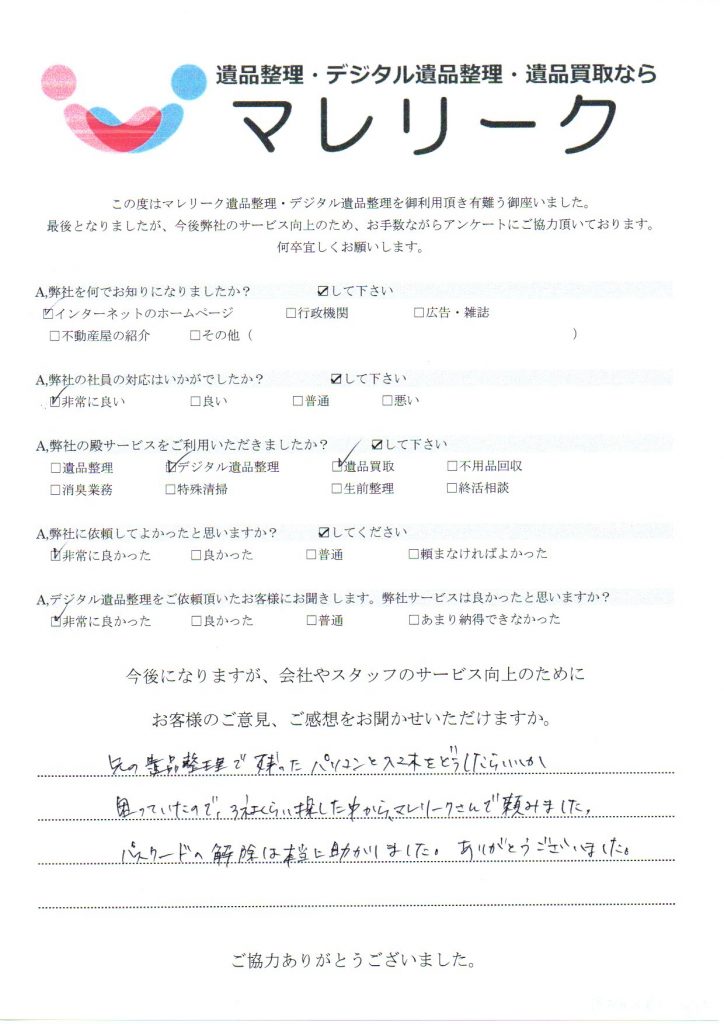 遺品整理・デジタル遺品整理・遺品買取なら
マレリーク
この度はマレリーク遺品整理・デジタル遺品整理を御利用頂き有難う御座いました。
最後となりましたが、今後弊社のサービス向上のため、お手数ながらアンケートにご協力頂いております。
何卒宜しくお願いします。
A,弊社を何でお知りになりましたか？ ☑して下さい
☑インターネットのホームページ □行政機関 □広告・雑誌
□不動産屋の紹介 □その他（ ）
A,弊社の社員の対応はいかがでしたか？ ☑して下さい
☑非常に良い □良い □普通 □悪い
A,弊社の殿サービスをご利用いただきましたか？ ☑して下さい
□遺品整理 ☑デジタル遺品整理 ☑遺品買取 □不用品回収
□消臭業務 □特殊清掃 □生前整理 □終活相談
A,弊社に依頼してよかったと思いますか？ ☑してください
☑非常に良かった □良かった □普通 □頼まなければよかった
A,デジタル遺品整理をご依頼頂いたお客様にお聞きします。弊社サービスは良かったと思いますか？
☑非常に良かった □良かった □普通 □あまり納得できなかった
今後になりますが、会社やスタッフのサービス向上のために
お客様のご意見、ご感想をお聞かせいただけますか。
兄の遺品整理で残ったパソコンとスマホをどうしたらいいか
困っていたので、3社くらい探した中から、マレリークさんで頼みました。
パスワードの解除は本当に助かりました。ありがとうございました。
ご協力ありがとうございました。